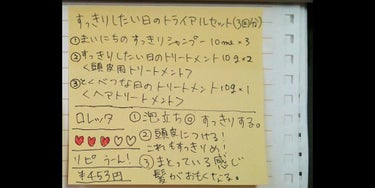 すっきりしたい日のトライアルセット(3回分)
①まいにちのすっきりシャンプー 10ml×3
②すっきりしたい日のトリートメント 10g×2
<頭皮用トリートメント>
③とくべつな日のトリートメント 10g×1
<ヘアトリートメント>
ロレッタ
♥♥♥♡♡
リピ うーん!
¥453円
①泡立ち◎ すっきりする。
②頭皮につける!
これもすっきりめ!
③まとっている感じ
髪がおもくなる。